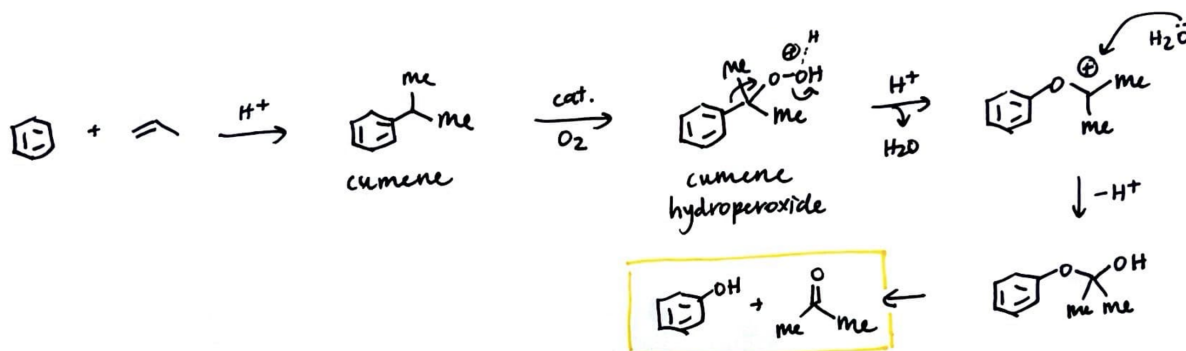 +
H⁺
Me
Me
cumene
cat.
O₂
Me
O-OH
⊕
H
Me
cumene
hydroperoxide
H⁺
H₂O
O
⊕
Me
Me
H₂O
-H⁺
O
OH
Me Me
OH
+
O
Me
Me